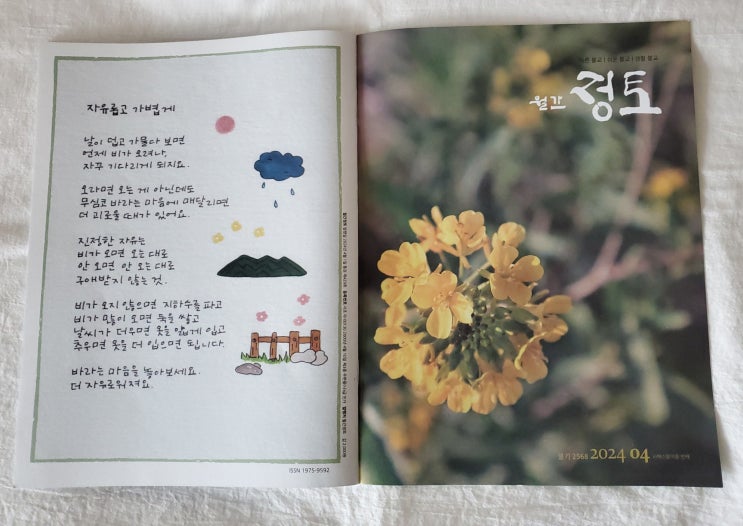 자유롭고 가볍게
날이 덥고 가물다 보면
언제 비가 오려나,
자꾸 기다리게 되지요.
오라면 오는 게 아닌데도
무심코 바라는 마음에 매달리면
더 괴로울 때가 있어요.
진정한 자유는
비가 오면 오는 대로
안 오면 안 오는 대로
구애받지 않는 것.
비가 오지 않으면 지하수를 파고
비가 많이 오면 둑을 쌓고
날씨가 더우면 옷을 얇게 입고
추우면 옷을 더 입으면 됩니다.
바라는 마음을 놓아보세요.
더 자유로워져요.
ISSN 1975-9592
바른 불교 | 쉬운 불교 | 생활 불교
월간 정토
불기 2568 2024 04